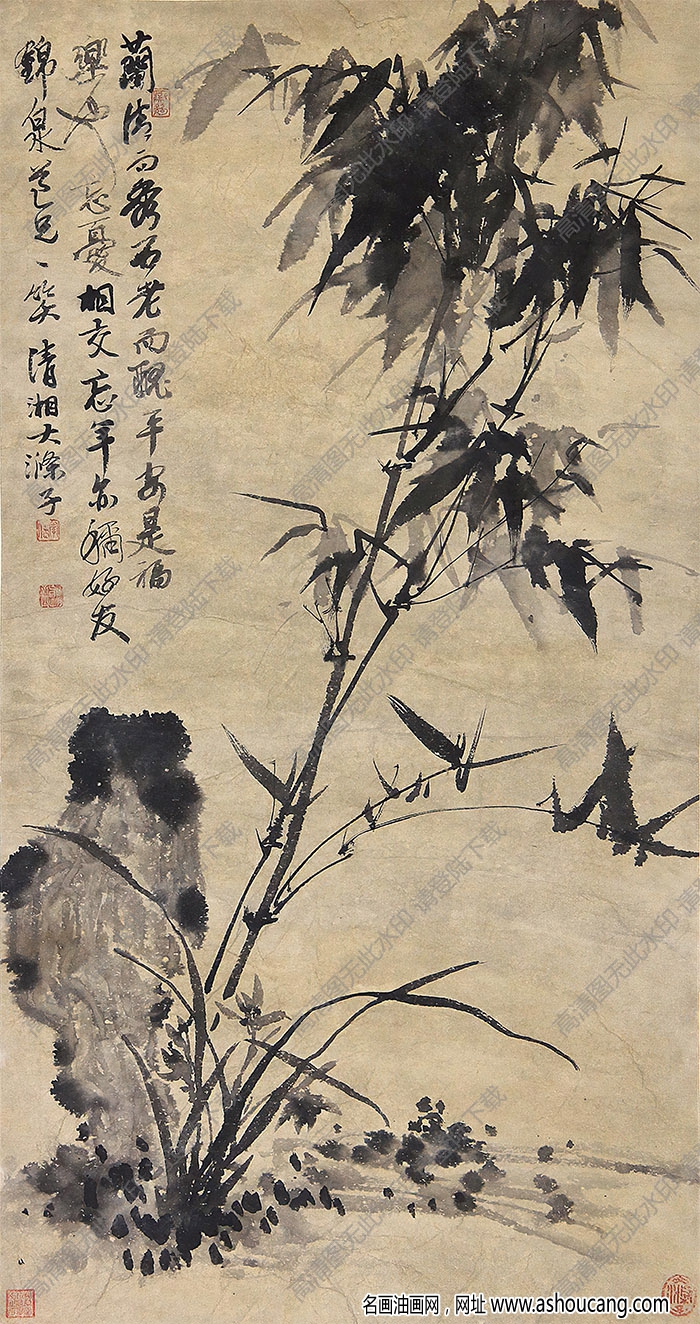 蘭清而秀石老而醜平安是福
樂也忘憂相交忘年亦稱好友
錦泉道兄一笑清湘大滌子
高清图无此水印 请登陆下载
名画油画网，网址 www.ashoucang.com